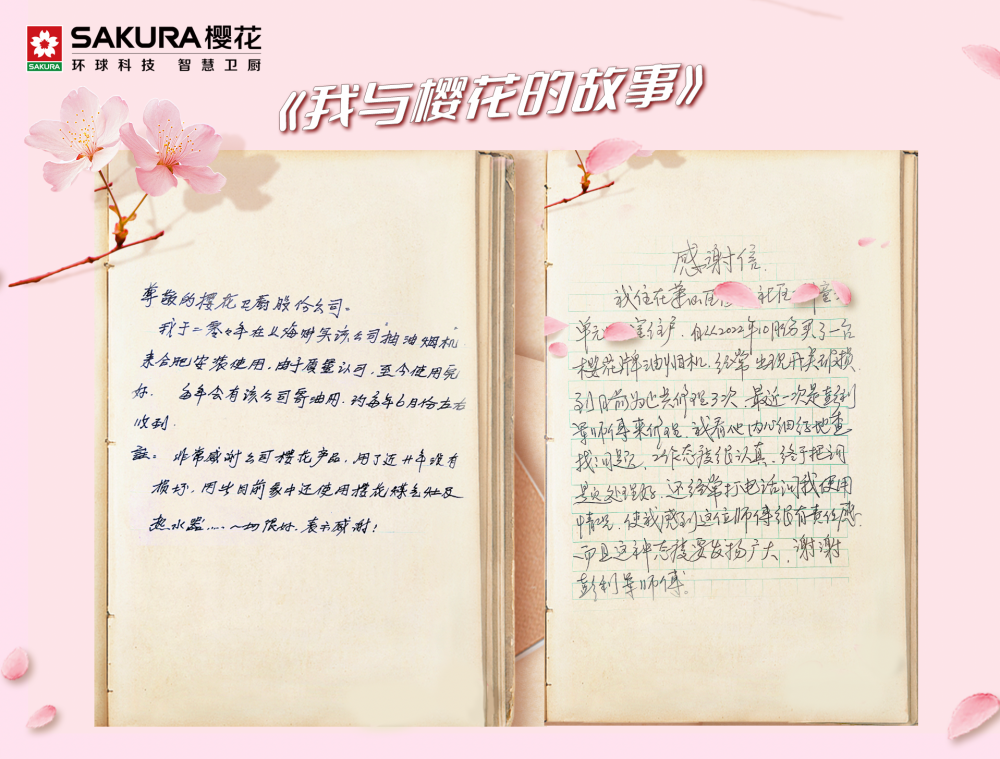 SAKURA樱花
SAKURA
环球科技 智慧卫厨
《我与樱花的故事》
尊敬的樱花卫厨股份公司。
我于二零零年在上海购买该公司"抽油烟机"
来合肥安装使用,由于质量认可,至今使用完
好. 每年会有该公司寄油网.约每年6月份左右
收到.
註:非常感谢公司樱花产品,用了近廿年没有
损坏,同步目前家中还使用樱花煤气灶及
热水器……一切很好.表示感谢!
感谢信.
我住在 社区 室
单元 室住户,自从2022年10月份买了一台
樱花牌油烟机,经常出现开关破损.
到目前为止共修理3次.最近一次是彭利
军师傅来修理.我看他内心细经地查
找问题,工作态度很认真.终于把问
题处理好,还经常打电话问我使用
情况.使我感到这位师傅很有责任感
而且这种态度要发扬广大,谢谢
彭利军师傅。